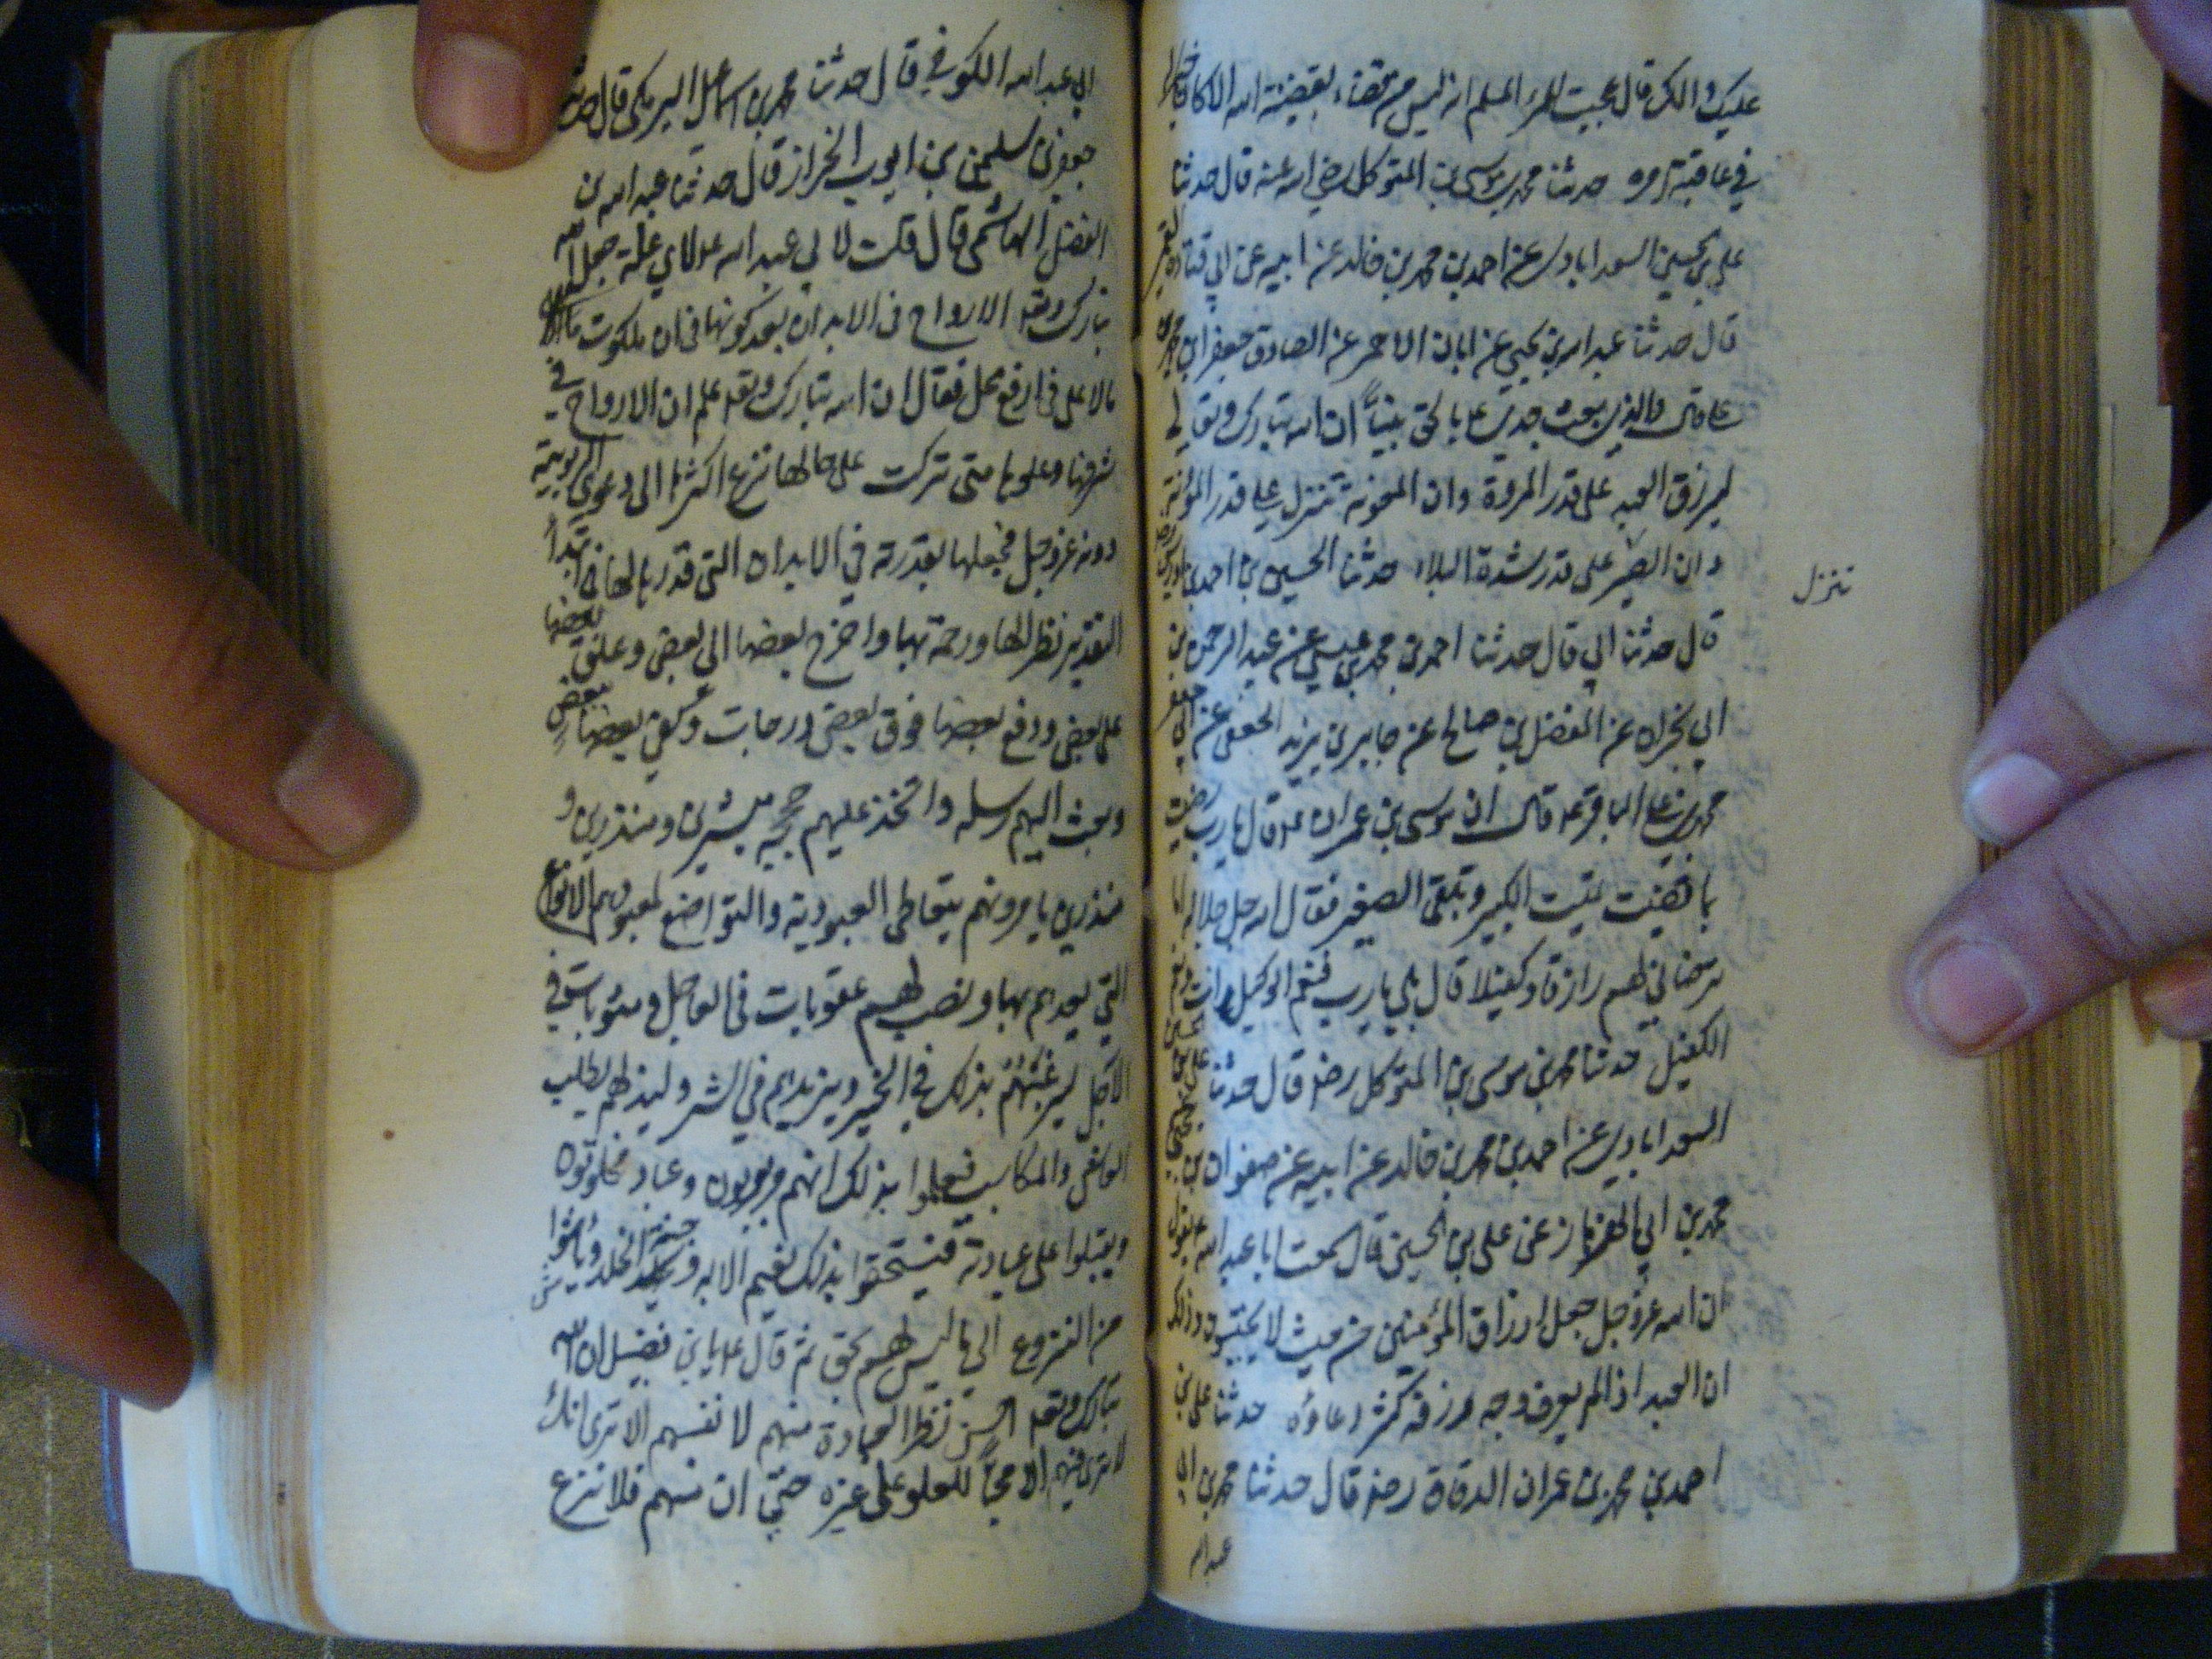 عليك وما لك قال عجبت للمرء المسلم انه ليس من قضاء يقضيه الله الا كان خيرا له
في عاقبة امره حدثنا محمد بن موسى بن المتوكل رضي الله عنه قال حدثنا
علي بن الحسين السعدابادي عن احمد بن محمد بن خالد عن ابيه عن ابي قتادة القمي
قال حدثنا عبد الله بن يحيى عن ابان الاحمر عن الصادق جعفر ابن محمد
ع قال والذي بعث جدي ع بالحق نبيا ان الله تبارك وتعالى
ليرزق العبد على قدر المروة وان المعونة تنزل على قدر المؤنة
وان الصبر على قدر شدة البلاء حدثنا الحسين بن احمد بن ادريس
تنزل
قال حدثنا ابي قال حدثنا احمد بن محمد بن عيسى عن عبد الرحمن بن
ابي نجران عن المفضل بن صالح عن جابر بن يزيد الجعفي عن ابي جعفر
محمد بن علي الباقر ع قال ان موسى بن عمران ع قال يا رب رضيت
بما قضيت تميت الكبير وتبقي الصغير فقال الله جل جلاله اما
ترضاني لهم رازقا وكفيلا قال بلى يا رب فنعم الوكيل انت ونعم
الكفيل حدثنا محمد بن موسى بن المتوكل رض قال حدثنا علي بن الحسين
السعدابادي عن احمد بن محمد بن خالد عن ابيه عن صفوان بن يحيى عن
محمد بن ابي الهزهاز عن علي بن الحسين قال سمعت ابا عبد الله ع يقول
ان الله عز وجل جعل ارزاق المؤمنين من حيث لا يحتسبون وذلك
ان العبد اذا لم يعرف وجه رزقه كثر دعاؤه حدثنا علي بن
احمد بن محمد بن عمران الدقاق رض قال حدثنا محمد بن ابي
عبد الله
ابي عبد الله الكوفي قال حدثنا محمد بن اسماعيل البرمكي قال حدثنا
جعفر بن سليمن بن ايوب الخزاز قال حدثنا عبد الله بن
الفضل الهاشمي قال قلت لابي عبد الله ع لاي علة جعل الله
تبارك وتعا الارواح في الابدان بعد كونها في ملكوته
الاعلى في ارفع محل فقال ان الله تبارك وتعا علم ان الارواح في
شرفها وعلوها متى تركت على حالها نزع اكثرها الى دعوى الربوبية
دونه عز وجل فجعلها بقدرته في الابدان التي قدرها لها في ابتداء
التقدير نظرا لها ورحمة بها واحوج بعضها الى بعض وعلق بعضها
على بعض ورفع بعضها فوق بعض درجات وكفى بعضها ببعض
وبعث اليهم رسله واتخذ عليهم حججه مبشرين ومنذرين و
منذرين يامرونهم بتعاطي العبودية والتواضع لمعبودهم بالانواع
التي تعبدهم بها ونصب لهم عقوبات في العاجل ومثوبات في
الآجل ليرغبهم بذلك في الخير ويزهدهم في الشر وليذلهم بطلب
المعاش والمكاسب فيعلموا بذلك انهم مربوبون وعباد مخلوقون
ويقبلوا على عبادته فيستحقوا بذلك نعيم الابد وجنة الخلد ويامنوا
من النزوع الى ما ليس لهم بحق ثم قال ع يابن الفضل ان الله
تبارك وتعا احسن نظرا لعباده منهم لانفسهم الا ترى انك
لا ترى فيهم الا محبا للعلو على غيره حتى ان منهم فلا نزع